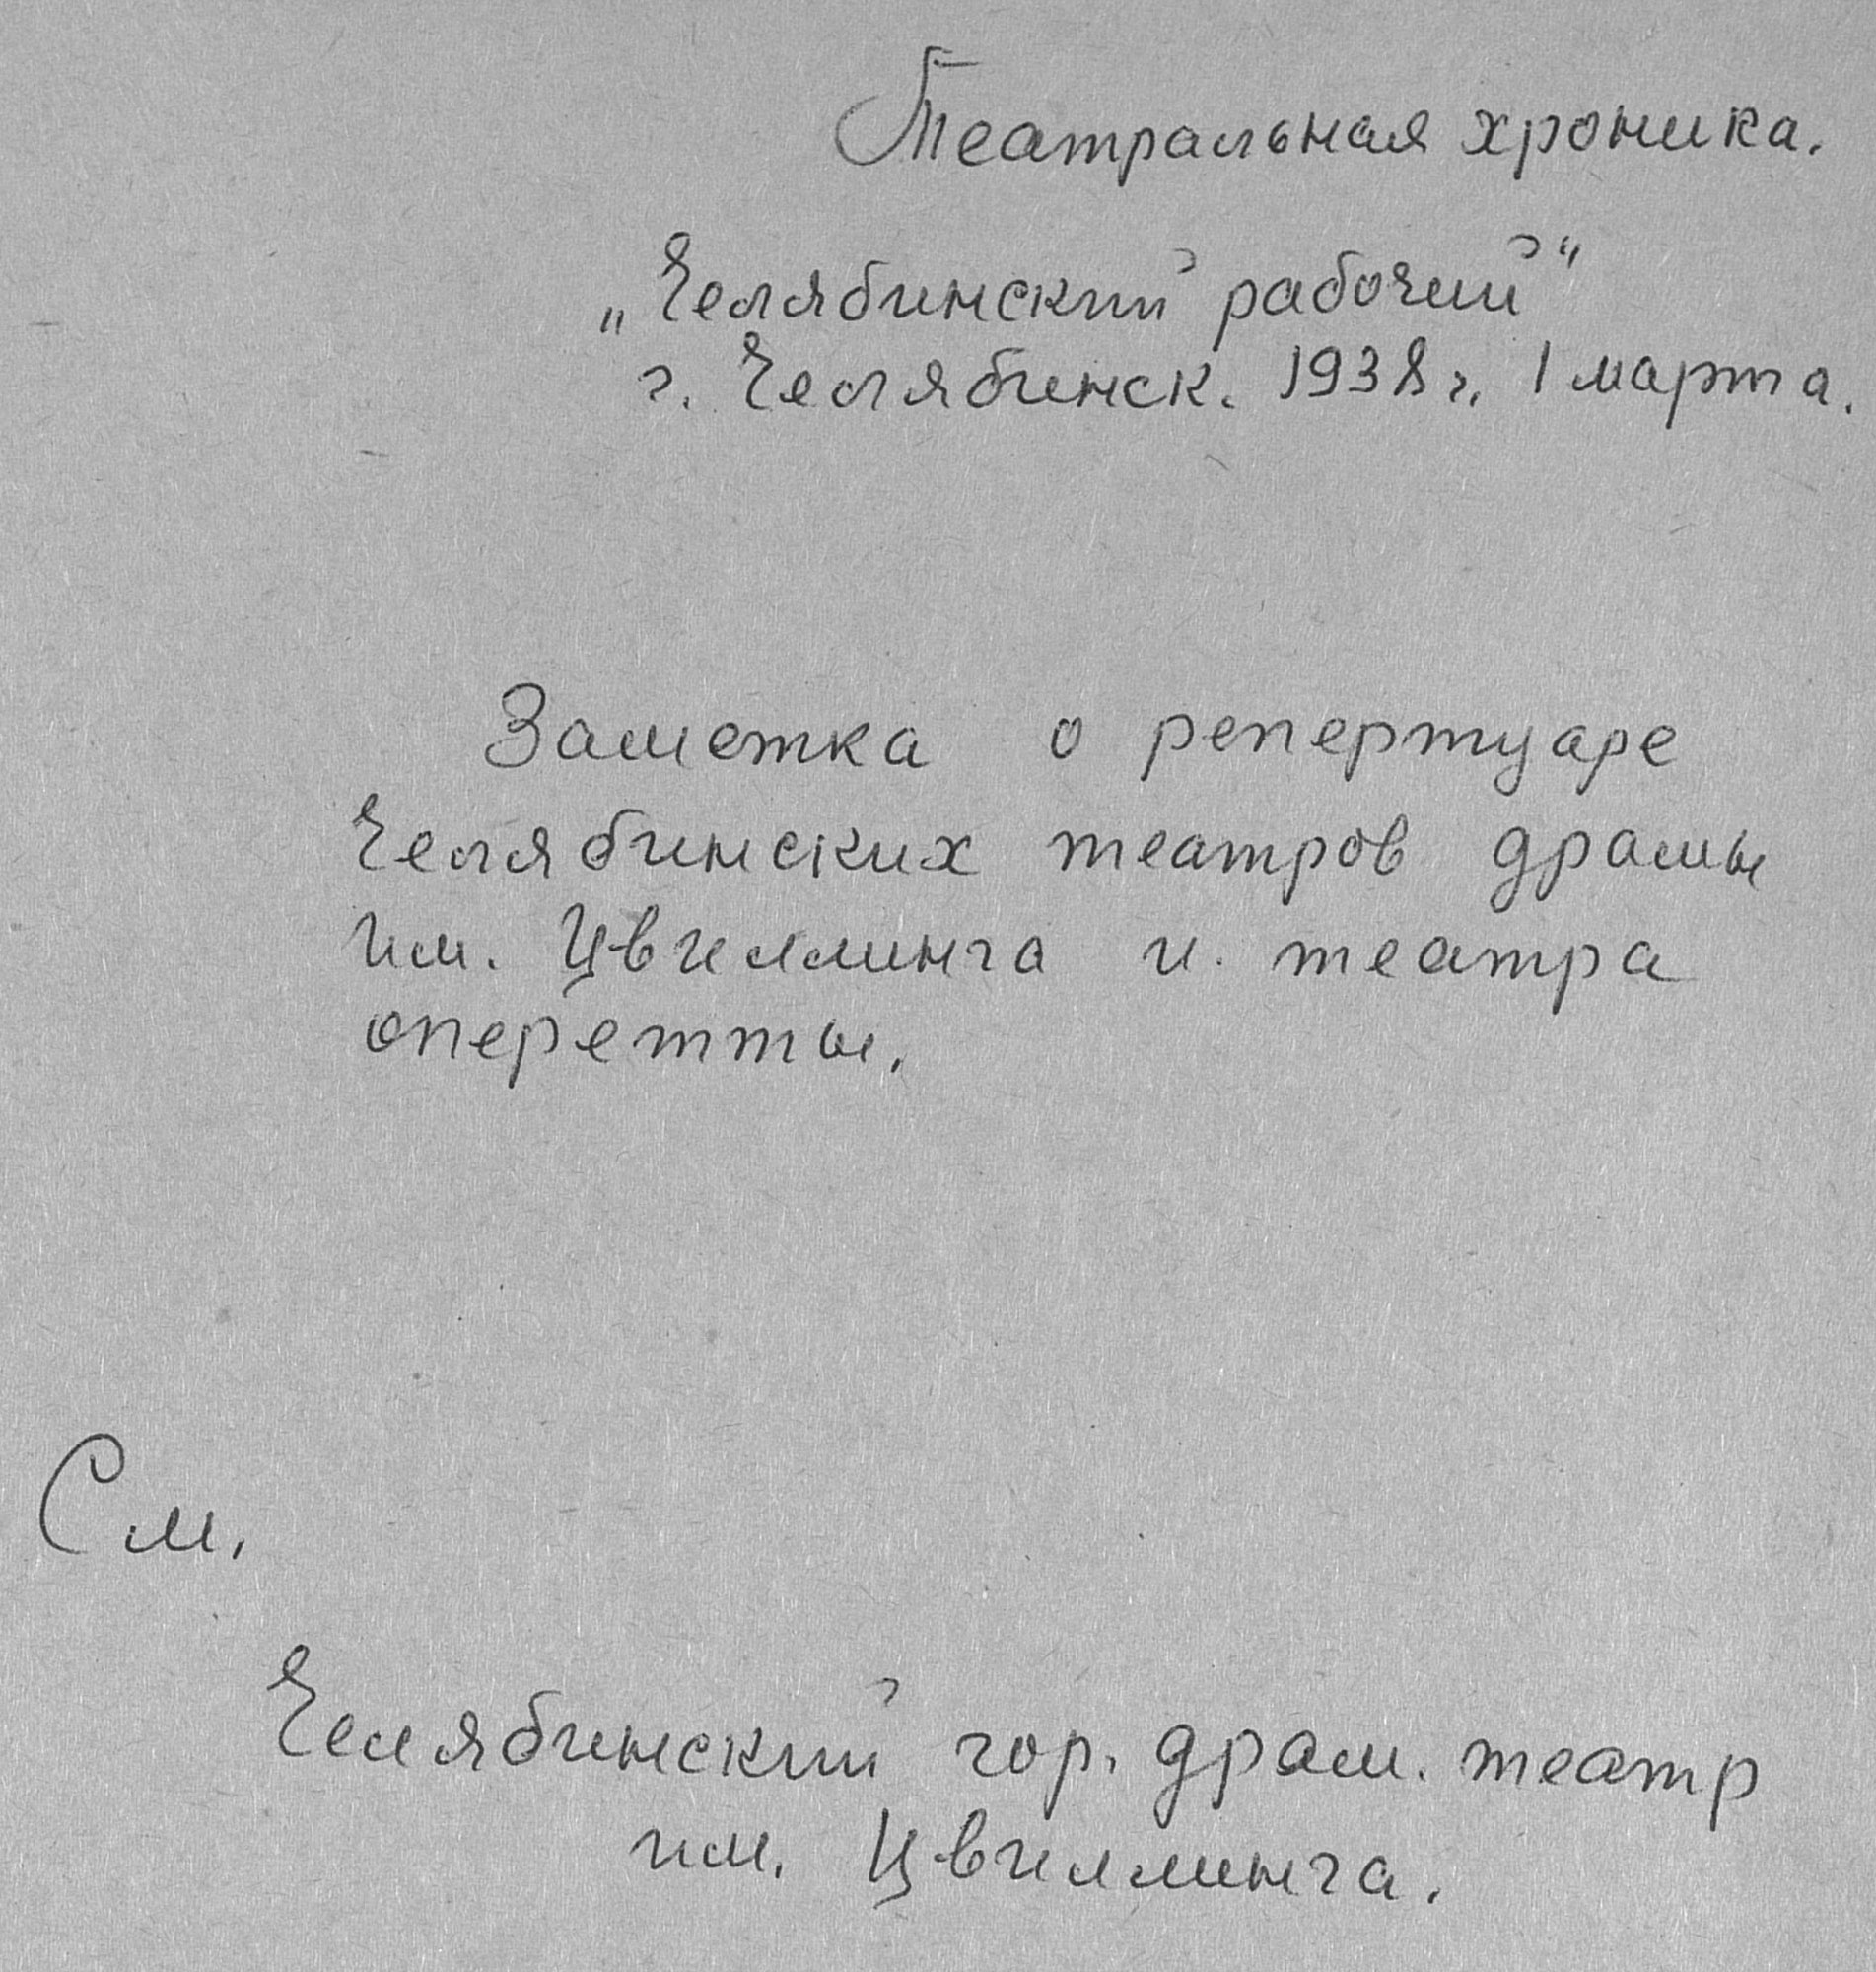 Театральная хроника.
„Челябинский рабочий“
г. Челябинск. 1938 г. 1 марта.
Заметка о репертуаре
Челябинских театров драмы
им. Цвиллинга и. театра
оперетты.
См.
Челябинский гор. драм. театр
им. Цвиллинга.